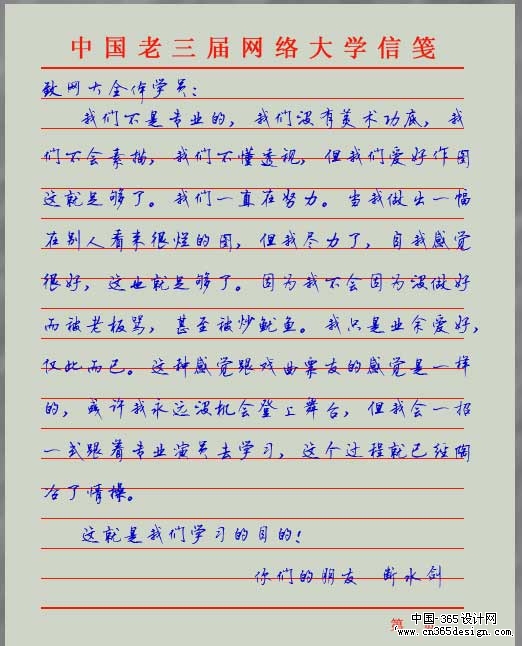 中国老三届网络大学信笺
致网大全体学员：
我们不是专业的，我们没有美术功底，我
们不会素描，我们不懂透视，但我们爱好作图
这就足够了。我们一直在努力。当我做出一幅
在别人看来很烂的图，但我尽力了，自我感觉
很好，这也就足够了。因为我不会因为没做好
而被老板骂，甚至被炒鱿鱼。我只是业余爱好，
仅此而已。这种感觉跟戏曲票友的感觉是一样
的，或许我永远没机会登上舞台，但我会一招
一式跟着专业演员去学习，这个过程就已经陶
冶了情操。
这就是我们学习的目的！
你们的朋友 断水剑
第
中国-365设计网
www.cn365design.com